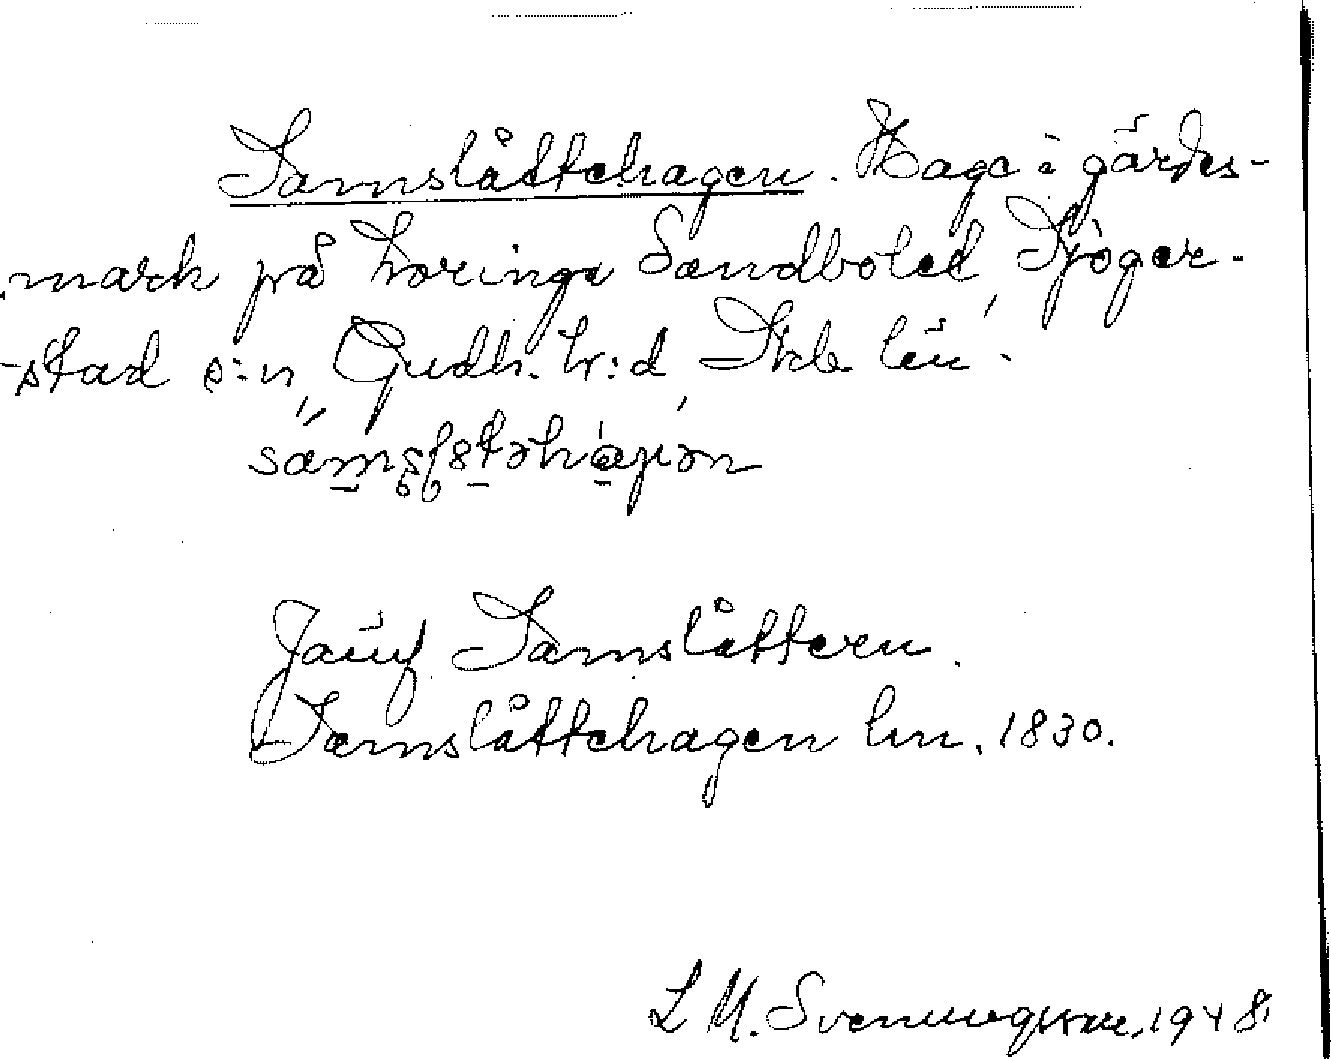 Samslåttehagen. Hage i gärdes-
mark på Loringa Sandboled, Sjöger-
-stad s:n, Gudh. h:d, Skb län.
Jämf Samslåttern.
Samslåttehagen lm. 1830.
L M. Svenungsson, 1948